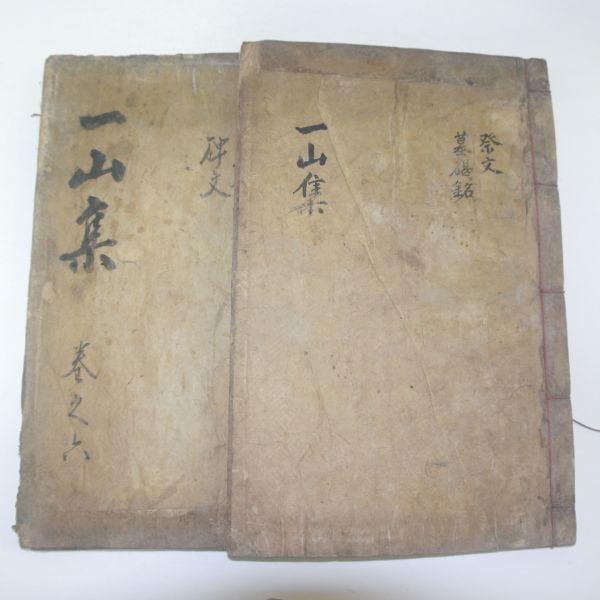 一山集
碑文
卷之六
一山集
祭文
墓碣銘